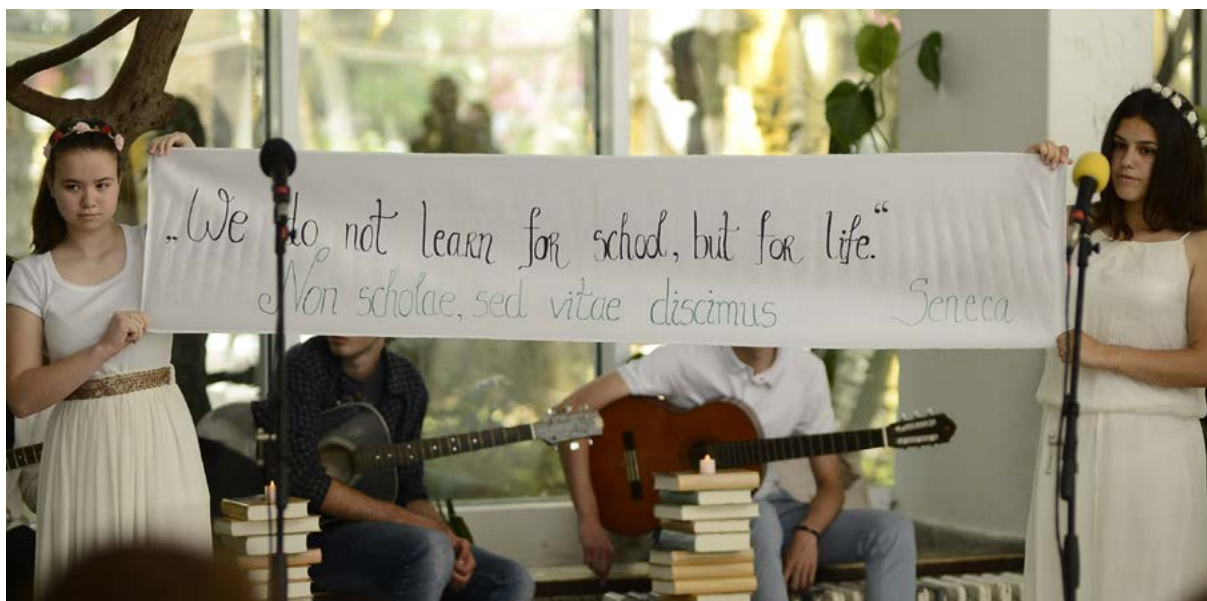 „We do not learn for school, but for life.“
Non scholae, sed vitae discimus Seneca